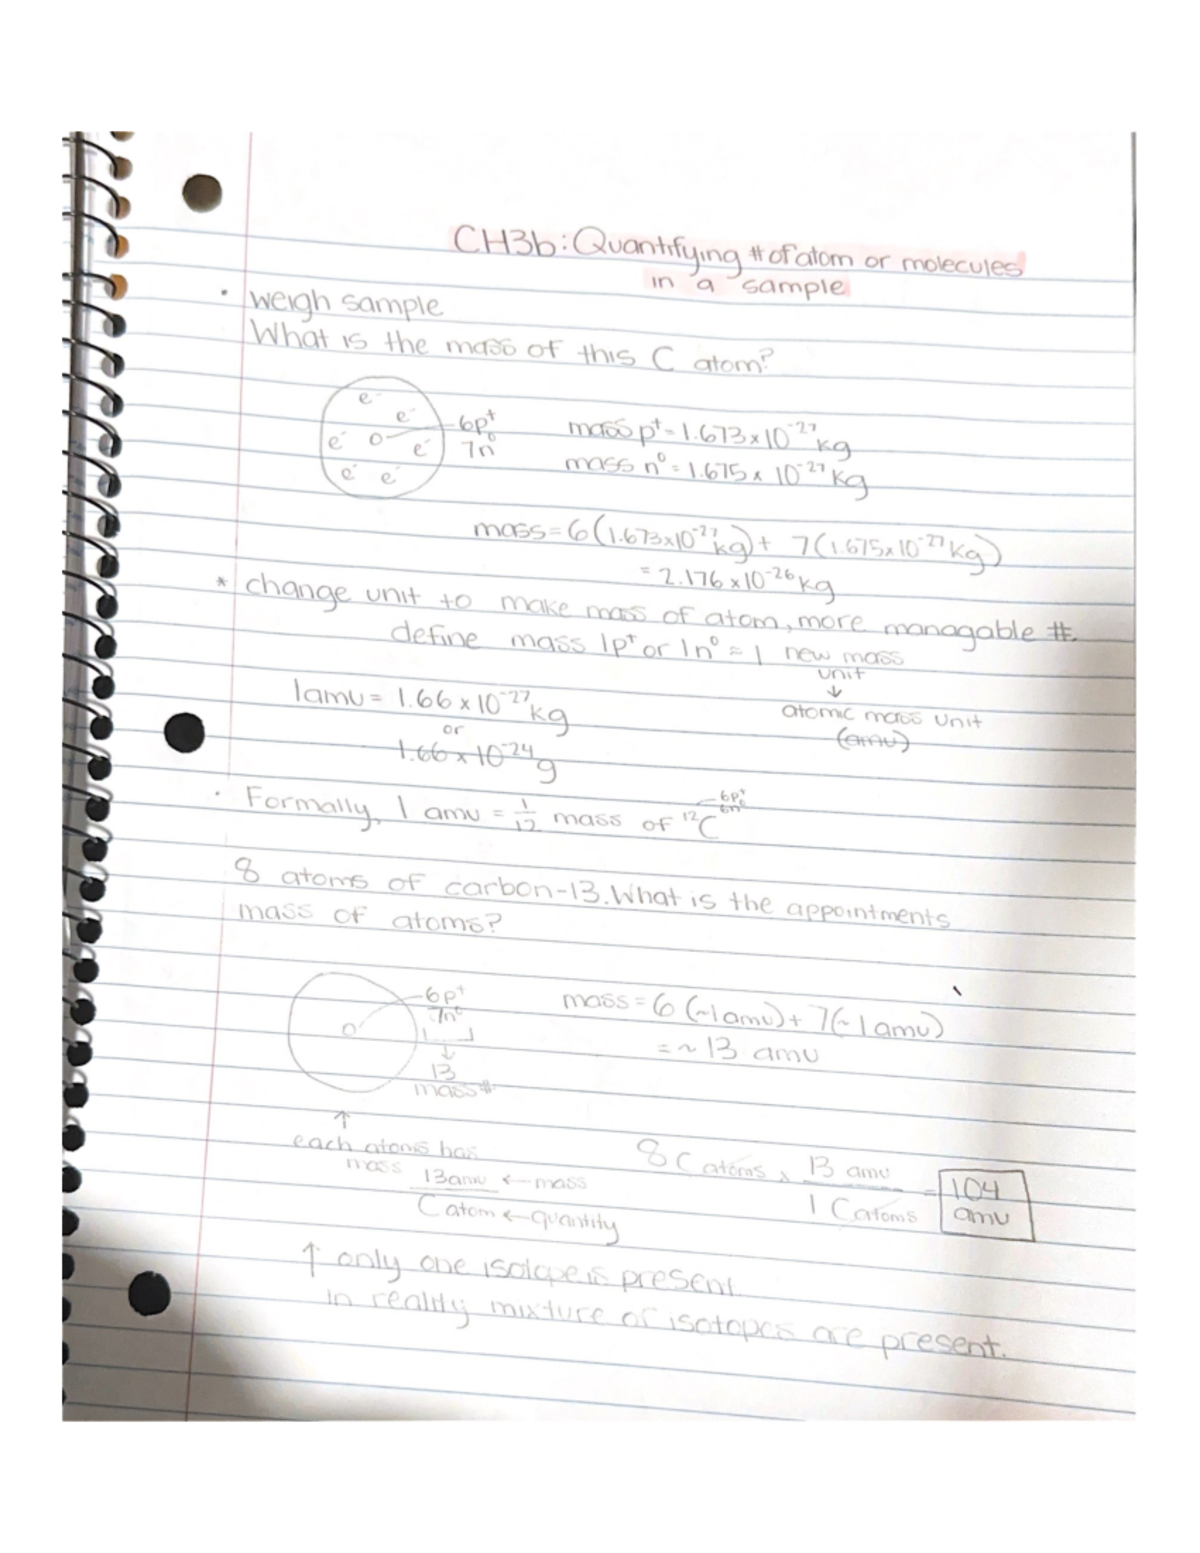 CH3b: Quantifying # of atom or molecules
in a sample
• weigh sample
What is the mass of this C atom?
e⁻
e⁻
e⁻
e⁻
e⁻
e⁻
6p⁺
7n⁰
mass p⁺ = 1.673 x 10⁻²⁷ kg
mass n⁰ = 1.675 x 10⁻²⁷ kg
mass = 6(1.673x10⁻²⁷ kg) + 7(1.675x10⁻²⁷ kg)
= 2.176 x10⁻²⁶ kg
* change unit to make mass of atom, more managable #.
define mass 1p⁺ or 1n⁰ ≈ 1 new mass
unit
↓
atomic mass unit
(amu)
1amu = 1.66 x 10⁻²⁷ kg
or
1.66 x 10⁻²⁴ g
• Formally, 1 amu = 1/12 mass of ¹²C
6p⁺
6n⁰
8 atoms of carbon-13. What is the appointments
mass of atoms?
6p⁺
7n⁰
↓
13
mass #
mass = 6 (~1amu) + 7(~1amu)
= ~ 13 amu
↑
each atoms has
mass 13amu ← mass
C atom ← quantity
8 C atoms x 13 amu / 1 C atoms = 104 amu
↑ only one isotope is present
in reality mixture of isotopes are present.